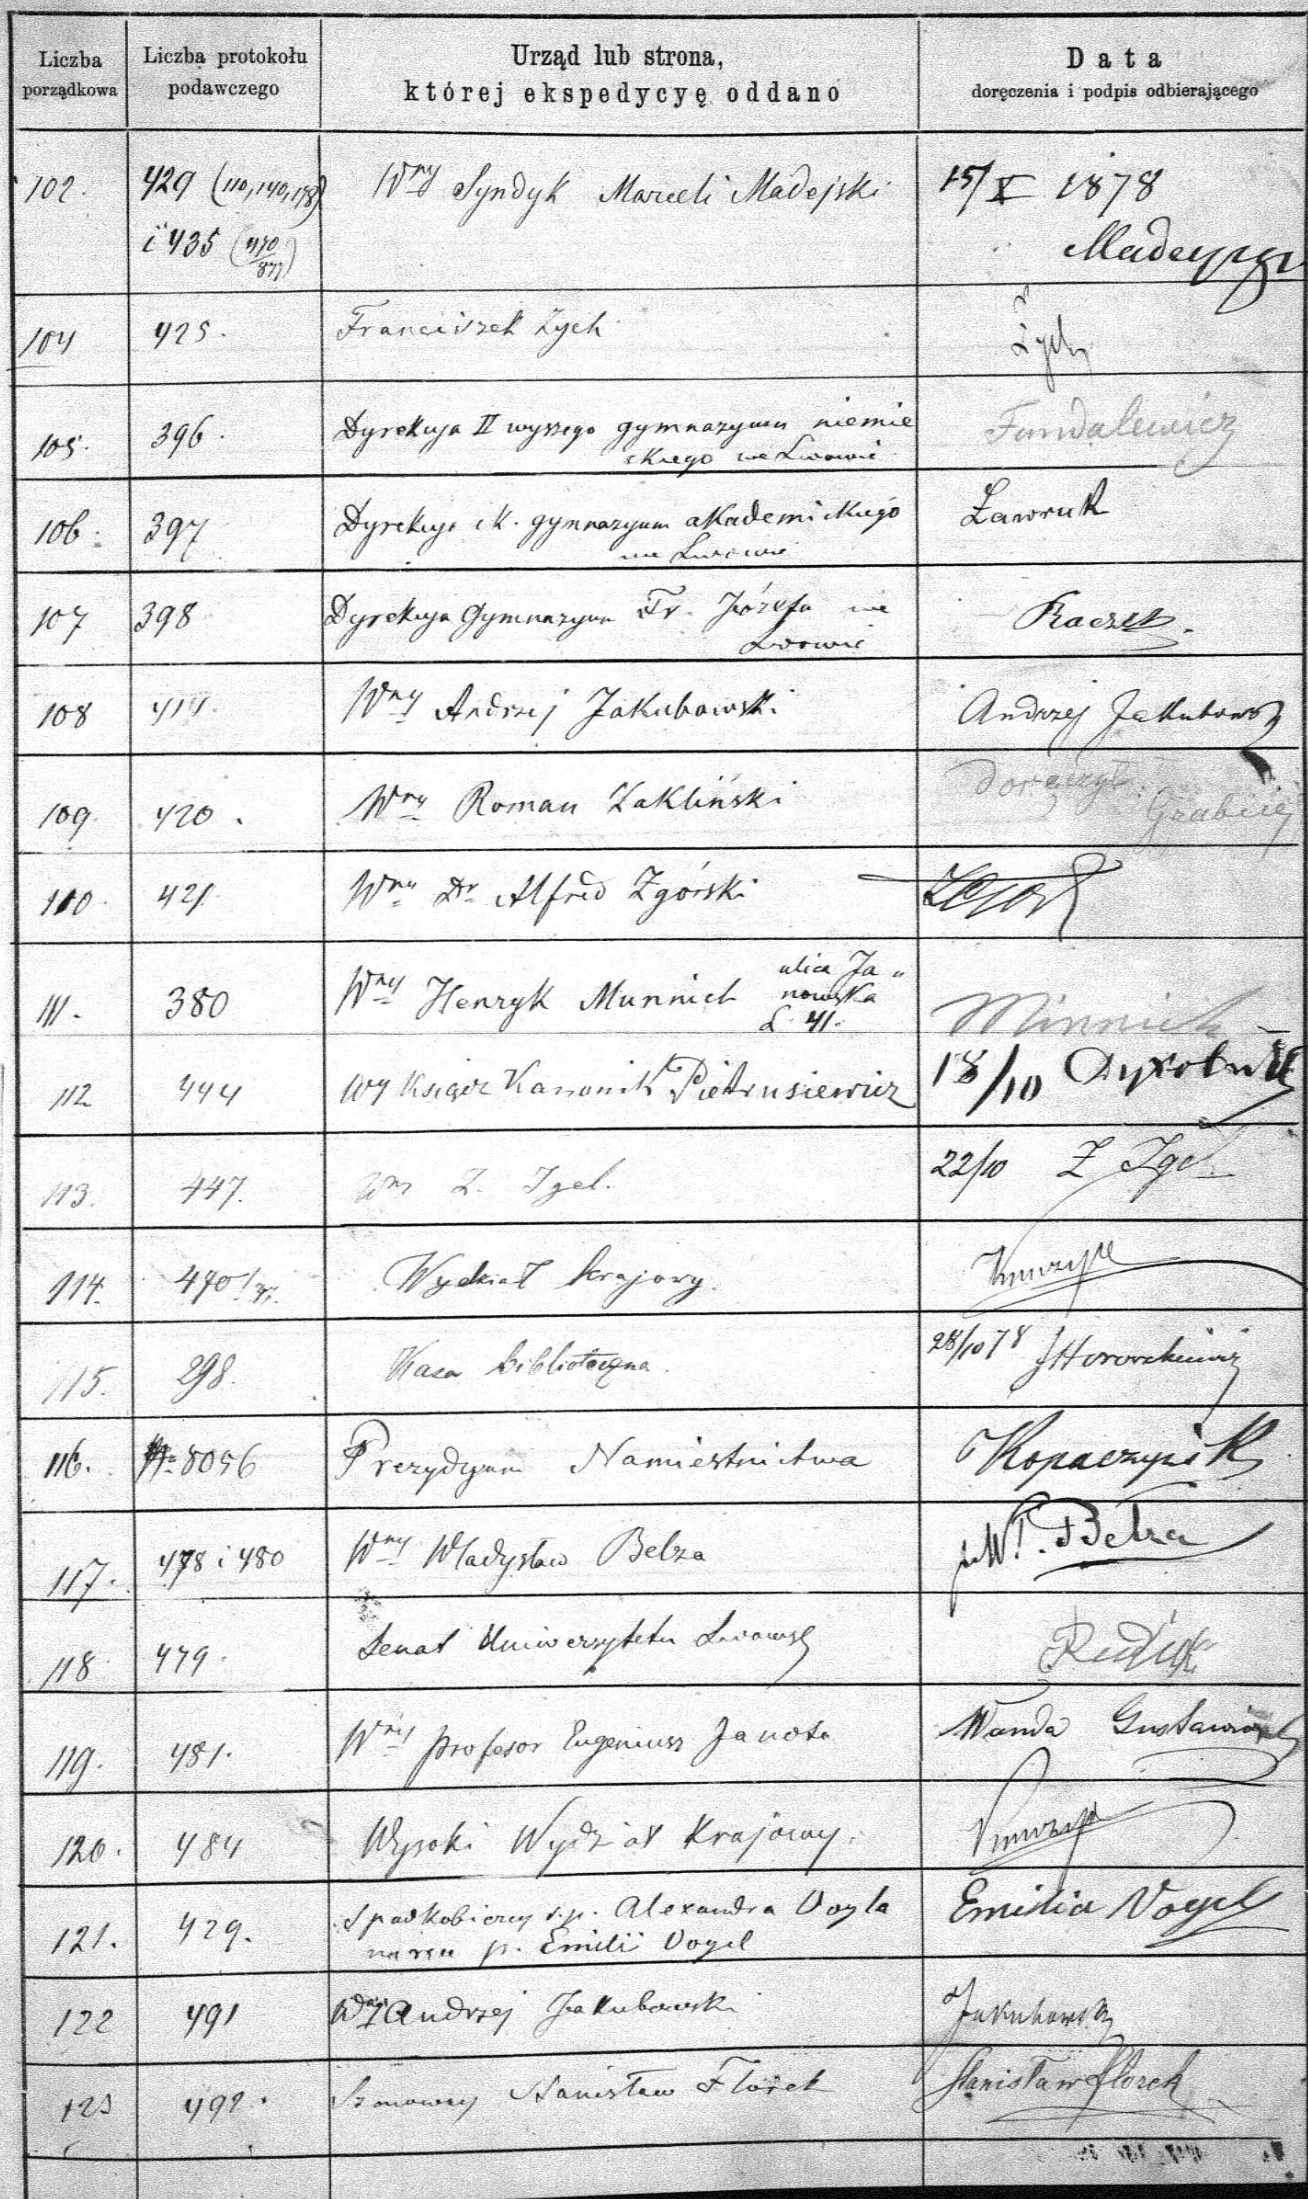 Liczba porządkowa
Liczba protokołu podawczego
Urząd lub strona, której ekspedycyę oddano
Data doręczenia i podpis odbierającego
102. 429 (110, 140, 178) Wny Syndyk Marceli Madejski 15/X 1878
i 435 (470/877)
104 425. Franciszek Zych Zych
105. 396. Dyrekcya II wyszego gymnazyum niemie
ckiego we Lwowie
106. 397 Dyrekcya ck. gymnazyum akademickiego Ławruk
we Lwowie
107 398 Dyrekcya Gymnazyum Fr. Józefa we Raczek
Lwowie
108 Wny Andrzej Jakubowski Andrzej Jakubowski
109 420. Wny Roman Zakliński doręczył
110. 421. Wny Dr Alfred Zgórski
111. 380 Wny Henryk Munnich ulica Ja„
nowska
L. 41. Minnich
112 444 Wy Ksiądz Kanonik Pietrusiewicz 18/10
113. 447. Wny Z. Igel. 22/10 Z Igel
114. 470/ Wydział krajowy.
115. 298. Kasa biblioteczna. 28/10 78
116. 8056 Prezydyum Namiestnictwa
117. 478 i 480 Wny Władysław Bełza Wł. Bełza
118 479. Senat Uniwersytetu Lwowsk
119. 481. Wny profesor Eugeniusz Janota Wanda
120. 484 Wysoki Wydział Krajowy.
121. 429. Spadkobiercy ś.p. Alexandra Vogla Emilia Vogel
na ręce p. Emilii Vogel
122 491 Wny Andrzej Jakubowski Jakubowski
123 492. Szanowny Stanisław Florek Stanisław Florek